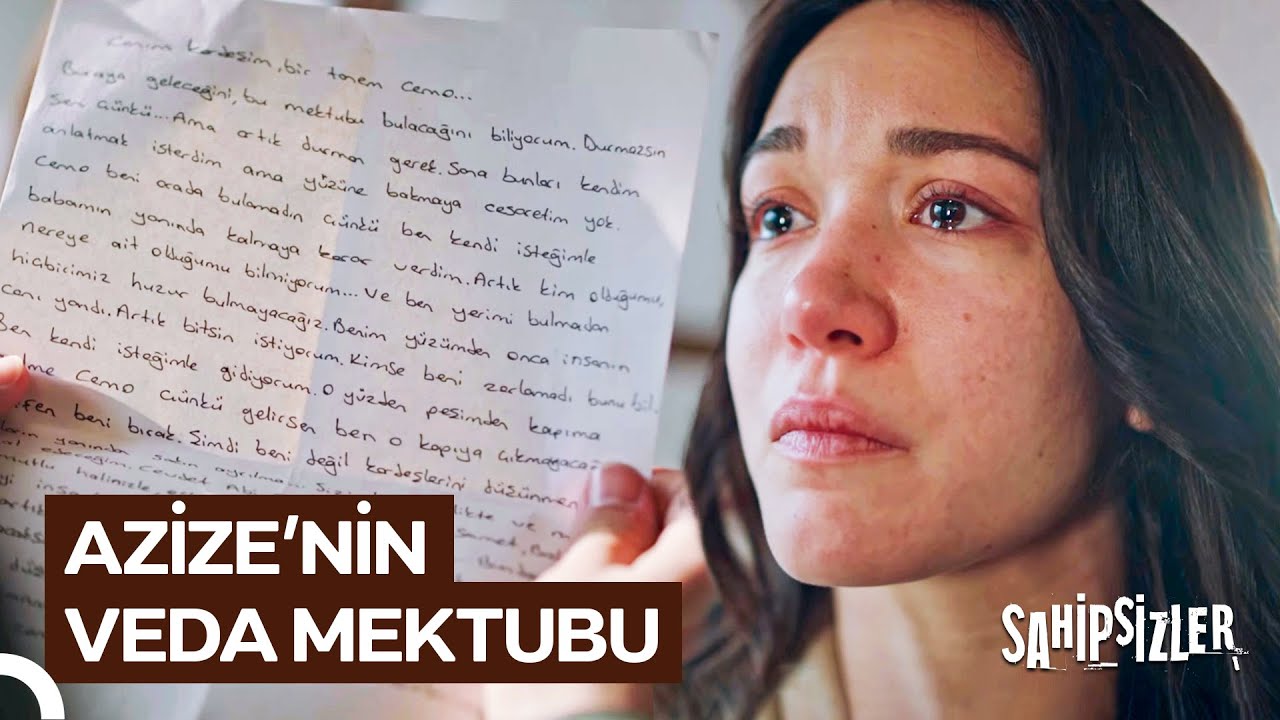 Canım kardeşim, bir tanem Cemo...
Buraya geleceğini, bu mektubu bulacağını biliyorum. Durmazsın
sen çünkü... Ama artık durman gerek. Sana bunları kendim
anlatmak isterdim ama yüzüne bakmaya cesaretim yok.
Cemo beni orada bulamadın çünkü ben kendi isteğimle
babamın yanında kalmaya karar verdim. Artık kim olduğumu,
nereye ait olduğumu bilmiyorum... Ve ben yerimi bulmadan
hiçbirimiz huzur bulmayacağız. Benim yüzümden onca insanın
canı yandı. Artık bitsin istiyorum. Kimse beni zorlamadı bunu bil.
Ben kendi isteğimle gidiyorum. O yüzden peşimden kapıma
me Cemo çünkü gelirsen ben o kapıya çıkmayacağ
fen beni bırak. Şimdi beni değil kardeşlerini düşünmen
yanında sakın ayrılma
edeceğim. Cevdet Abi
mutlu halinizle
AZİZE'NİN
VEDA MEKTUBU
SAHİPSİZLER